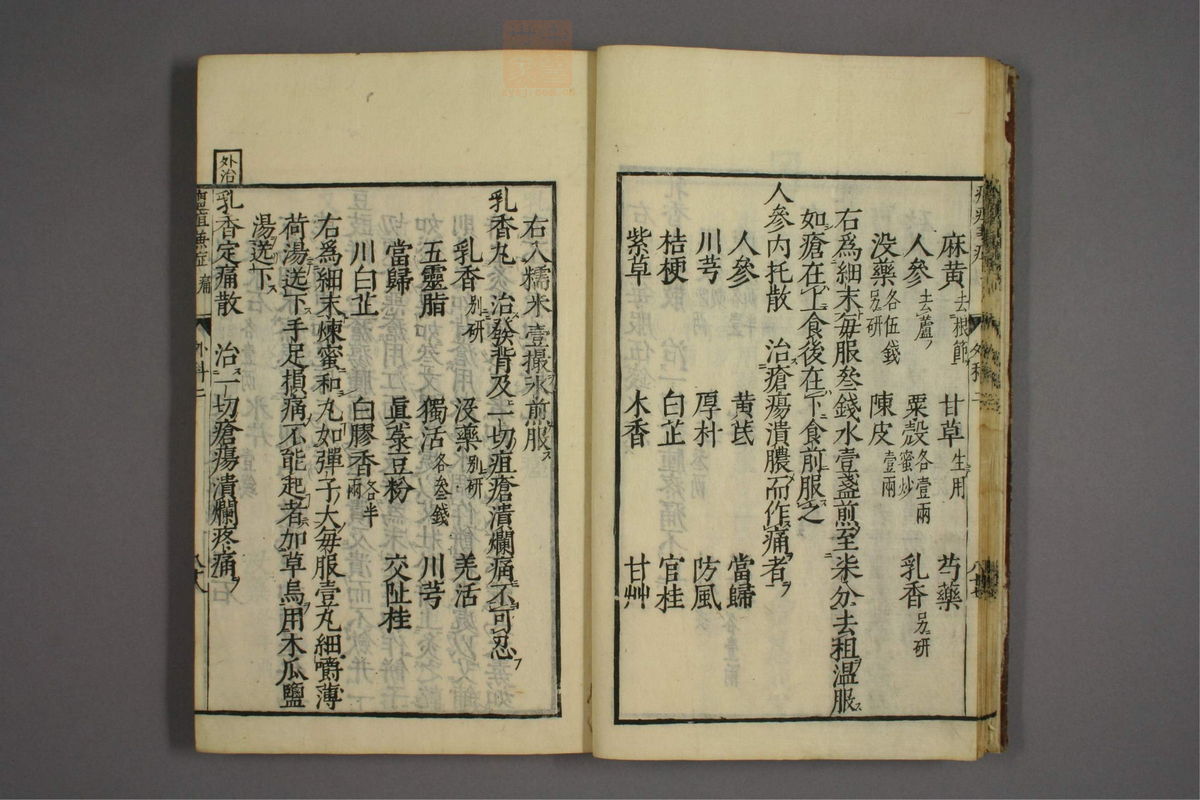 麻黄去根節 甘草生用 芍藥
人參去蘆 粟殼各壹兩蜜炒 乳香另研
没藥各伍錢另研 陳皮壹兩
右爲細末毎服叁錢水壹盞煎至柒分去柤温服
如瘡在上食後在下食前服之
人參内托散 治瘡瘍潰膿而作痛者
人參 黄芪 當歸
川芎 厚朴 防風
桔梗 白芷 官桂
紫草 木香 甘艸
右入糯米壹撮水煎服
乳香丸 治發背及一切疽瘡潰爛痛不可忍
乳香别研 没藥别研 羌活
五靈脂 獨活各叁錢 川芎
當歸 眞菉豆粉 交趾桂
川白芷 白膠香各半兩
右爲細末煉蜜和丸如彈子大毎服壹丸細嚼薄
荷湯送下手足損痛不能起者加草烏用木瓜鹽
湯送下
外治
乳香定痛散 治一切瘡瘍潰爛疼痛
外科二